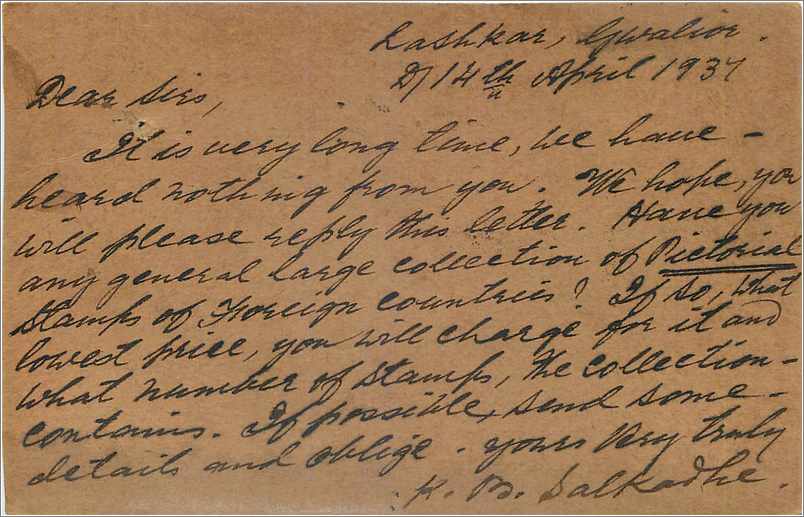 Lashkar, Gwalior.
D/14th April 1937
Dear Sirs,
It is very long time, we have -
heard nothing from you. We hope, you
will please reply this letter. Have you
any general large collection of Pictorial
stamps of Foreign countries? If so, what
lowest price, you will charge for it and
what number of stamps, the collection -
contains. If possible, send some -
details and oblige. yours very truly
K. B.